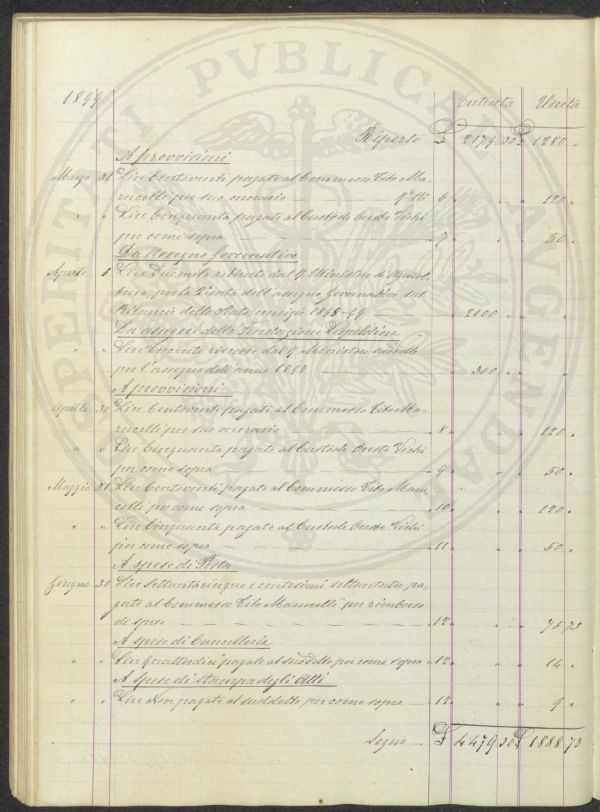 PROSPERITATI PVBLICAE AVGENDAE
1899
Entrata Uscita
Riporto £ 2179 30 £ 1280 "
A provvisioni
Marzo 31 Lire Centoventi pagate al Commesso Tito Ma-
rucelli per suo onorario 6 " " " 120 "
" " Lire Cinquanta pagate al Custode Oreste Vichi
per come sopra 7 " " " 50 "
Da Assegno Governativo
Aprile 1 Lire Duemila ritirate dal R. Ministero di Agricol-
tura, per la Rata dell'assegno Governativo sul
Bilancio dello Stato, esercizio 1898-99 2000 " " "
Da assegno della Fondazione Leopoldina
" " Lire Trecento riscosse dal R. Ministero suddetto
per l'assegno dell'anno 1898 300 " " "
A provvisioni
Aprile 30 Lire Centoventi pagate al Commesso Tito Ma-
rucelli per suo onorario 8 " " " 120 "
" " Lire Cinquanta pagate al Custode Oreste Vichi
per come sopra 9 " " " 50 "
Maggio 31 Lire Centoventi pagate al Commesso Tito Maru-
celli per come sopra 10 " " " 120 "
" " Lire Cinquanta pagate al Custode Oreste Vichi
per come sopra 11 " " " 50 "
A spese di Posta
Giugno 30 Lire Settantacinque e centesimi settantatre pa-
gate al Commesso Tito Marucelli per rimborso
di spese 12 " " " 75 73
A spese di Cancelleria
" " Lire Quattordici pagate al suddetto per come sopra 12 " " " 14 "
A spese di stampa degli Atti
" " Lire Nove pagate al suddetto per come sopra 12 " " " 9 "
Segue £ 4479 30 £ 1888 73